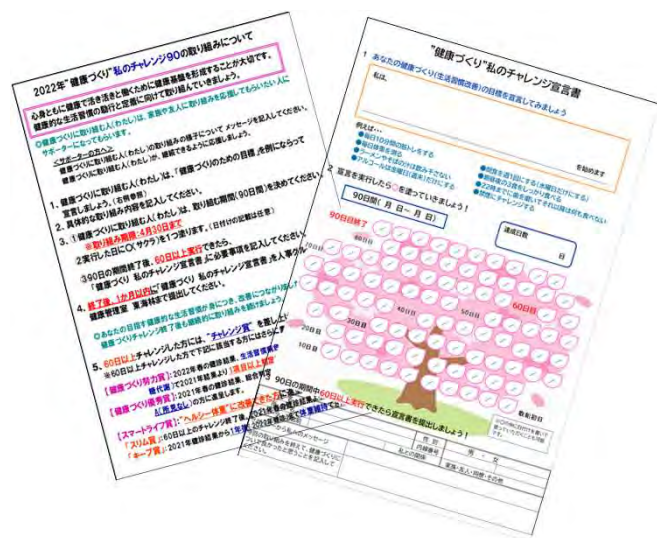 2022年“健康づくり”私のチャレンジ90の取り組みについて
心身ともに健康で活き活きと働くために健康基盤を形成することが大切です。
健康的な生活習慣の励行と定着に向けて取り組んでいきましょう。
◎健康づくりに取り組む人(わたし)は、家族や友人に取り組みを応援してもらいたい人に
サポーターになってもらいます。
<サポーターの方へ>
健康づくりに取り組む人(わたし)の取り組みの様子について メッセージを記入してください。
健康づくりに取り組む人(わたし)が、継続できるように応援しましょう。
1. 健康づくりに取り組む人(わたし)は、「健康づくりのための目標」を例にならって
宣言しましょう。(右側参照)
2. 具体的な取り組み内容を記入してください。
3. ①健康づくりに取り組む人(わたし)は、取り組む期間(90日間)を決めてください。
※取り組み期限:4月30日まで
②実行した日に〇(サクラ)を1つ塗ります。(日付けの記載は任意)
③90日の期間終了後、60日以上実行できたら、
「健康づくり 私のチャレンジ宣言書」に必要事項を記入してください。
4. 終了後、1か月以内に「健康づくり 私のチャレンジ宣言書」を人事グル
健康管理室 東海林まで提出してください。
◎あなたの目指す健康的な生活習慣が身につき、改善につながりました
健康づくりチャレンジ終了後も継続的に取り組みを続けましょう
5. 60日以上チャレンジした方には、“チャレンジ賞”を差し上
※60日以上チャレンジした方で下記に該当する方にはさらに
【健康づくり努力賞】:2022年春の健診結果、生活習慣
糖代謝)で2021年結果より1項目以上
【健康づくり優秀賞】:2021年春の健診結果、総合判定
A(所見なし)の方に進呈します。
【スマートライフ賞】:“ヘルシー体重”に改善できた方に
「スリム賞」:60日以上のチャレンジ終了後、2021年春の健診結果より
「キープ賞」:2021年健診結果から1年後、2022年健診結果まで体重維持
“健康づくり”私のチャレンジ宣言書
1 あなたの健康づくり(生活習慣改善)の目標を宣言してみましょう
私は、
を始めます
例えば・・・
●毎日10分間の筋トレをする
●毎日体重を測る
●ラーメンやそばの汁は飲み干さない
●アルコールは金曜日(週末)だけにする
●間食を週1回にする(水曜日だけにする)
●朝昼夜の3食をしっかり食べる
●22時までに歯を磨いてそれ以降は何も食べない
●禁煙にチャレンジする
2 宣言を実行したら〇を塗っていきましょう!
90日間( 月 日~ 月 日)
達成日数
日
90日目終了
80日目
70日目
60日目
50日目
40日目
30日目
20日目
10日目
取組初日
3 90日の期間中60日以上実行できたら宣言書を提出しましょう!
性別
男 ・ 女
内線番号
から私へのメッセージ
私との関係
家族・友人・同僚・その他
日の取り組みを終えて、健康づくりに
ついて良かったと思うことを記入して
ください。